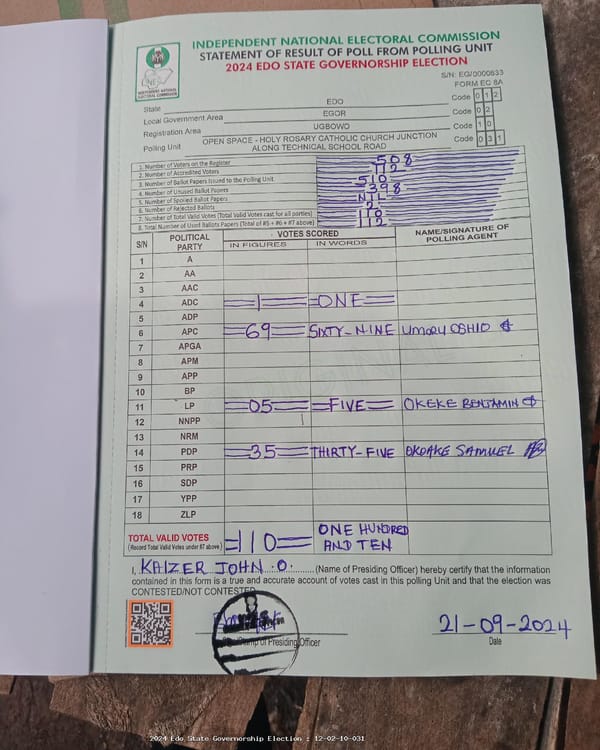 INDEPENDENT NATIONAL ELECTORAL COMMISSION
STATEMENT OF RESULT OF POLL FROM POLLING UNIT
2024 EDO STATE GOVERNORSHIP ELECTION
INEC
INDEPENDENT NATIONAL ELECTORAL COMMISSION
S/N: EG/0000633
FORM EC 8A
State EDO Code 0 1 2
Local Government Area EGOR Code 0 2
Registration Area UGBOWO Code 1 0
Polling Unit OPEN SPACE - HOLY ROSARY CATHOLIC CHURCH JUNCTION ALONG TECHNICAL SCHOOL ROAD Code 0 3 1
1. Number of Voters on the Register 508
2. Number of Accredited Voters 112
3. Number of Ballot Papers Issued to the Polling Unit 510
4. Number of Unused Ballot Papers 398
5. Number of Spoiled Ballot Papers NIL
6. Number of Rejected Ballots 2
7. Number of Total Valid Votes (Total Valid Votes cast for all parties) 110
8. Total Number of Used Ballots Papers (Total of #5 + #6 + #7 above) 112
S/N POLITICAL PARTY VOTES SCORED NAME/SIGNATURE OF POLLING AGENT
IN FIGURES IN WORDS
1 A
2 AA
3 AAC
4 ADC 1 ONE
5 ADP
6 APC 69 SIXTY-NINE UMORU OSHIO
7 APGA
8 APM
9 APP
10 BP
11 LP 05 FIVE OKEKE BENJAMIN
12 NNPP
13 NRM
14 PDP 35 THIRTY-FIVE OKOAKE SAMUEL
15 PRP
16 SDP
17 YPP
18 ZLP
TOTAL VALID VOTES 110 ONE HUNDRED AND TEN
(Record Total Valid Votes under #7 above)
I, KAIZER JOHN .O. (Name of Presiding Officer) hereby certify that the information
contained in this form is a true and accurate account of votes cast in this polling Unit and that the election was
CONTESTED/NOT CONTESTED
of Presiding Officer
21-09-2024
Date
2024 Edo State Governorship Election : 12-02-10-031